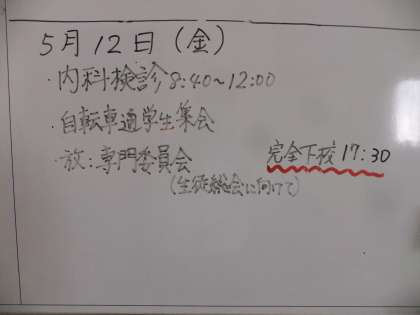 5月12日(金)
・内科検診8:40~12:00
・自転車通学生集会
・放:専門委員会 完全下校17:30
(生徒総会に向けて)